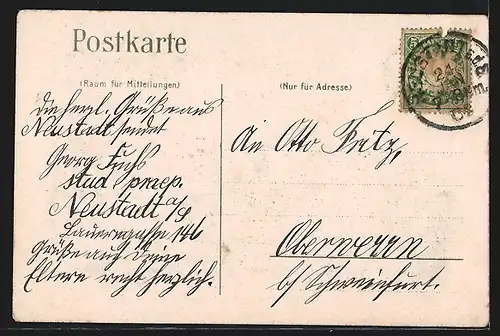 Postkarte
(Raum für Mitteilungen)
(Nur für Adresse)
die herzl. Grüße aus
Neustadt sendet
Georg Fuchs
stud praep.
Neustadt a/S
Bauerngasse 146
Grüße auch Deine
Eltern recht herzlich.
An Otto Fretz,
Oberwerrn
b/ Schweinfurt.
5
24